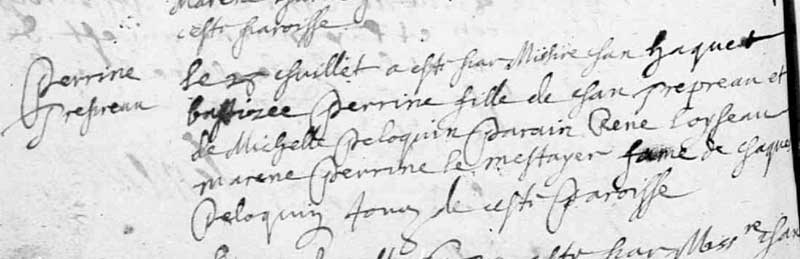 ceste paroisse
Perrine
Prepreau
le 25 Juillet a este par Missire Jan Haquet
baptizee Perrine fille de Jan Prepreau et
de Michelle Peloquin Parain Rene Loyseau
marene Perrine le mestayer fame de Jaques
Peloquin tous de ceste Paroisse
este par Missre Jan